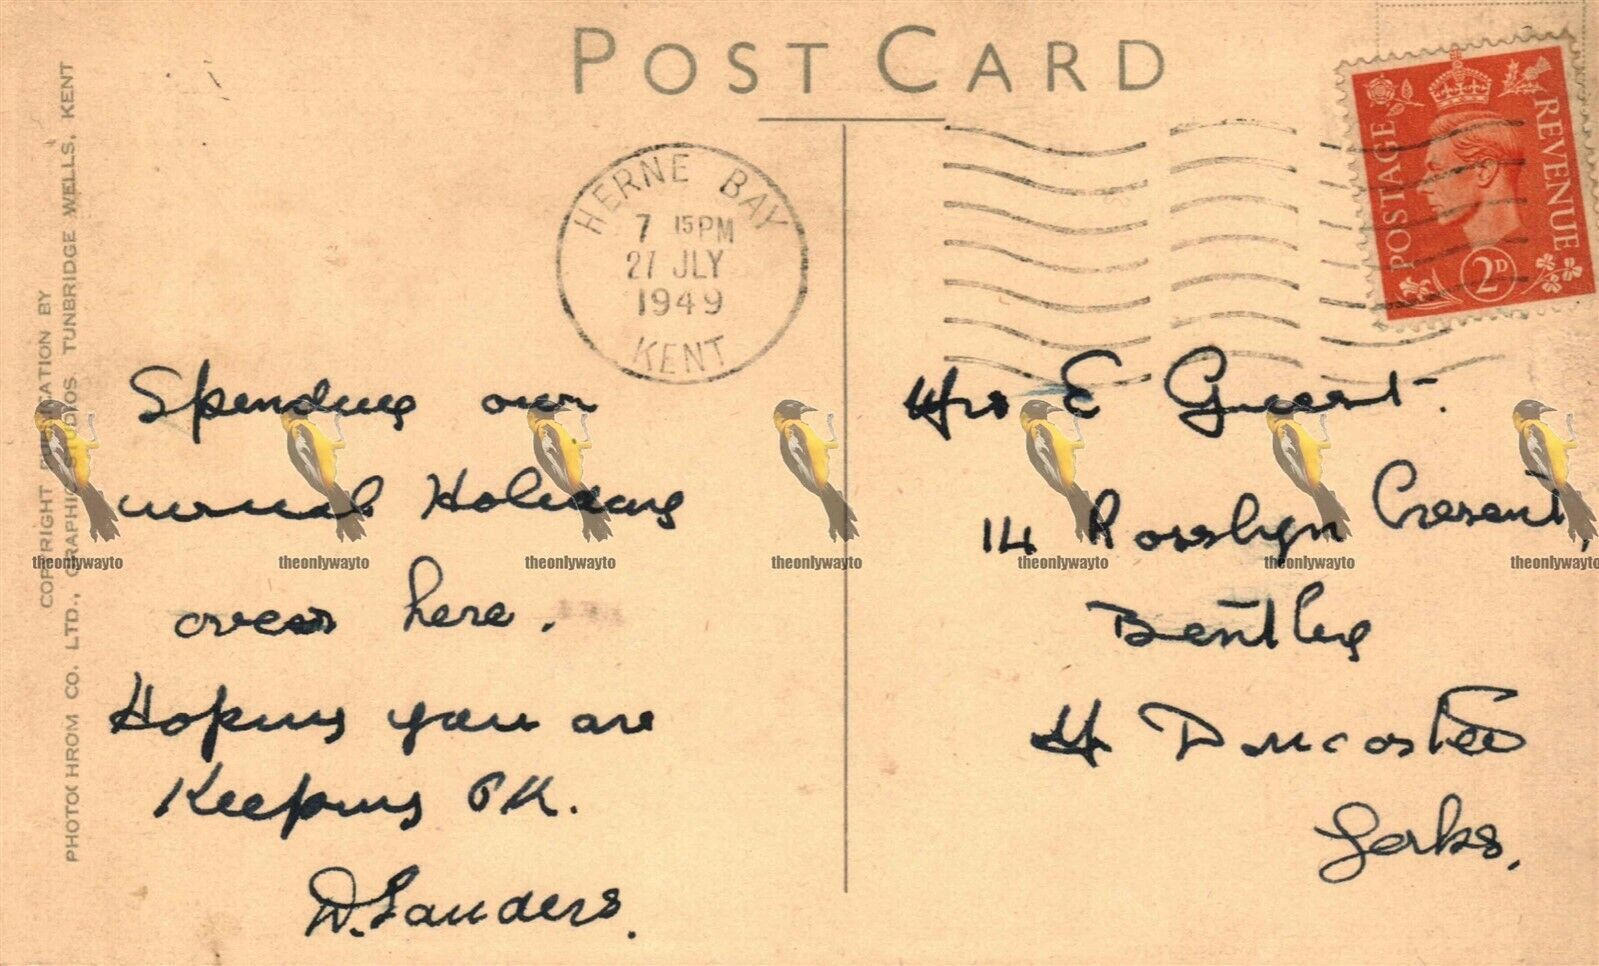 POST CARD
POSTAGE
REVENUE
2D
HERNE BAY
7 15PM
27 JLY
1949
KENT
COPYRIGHT PUBLICATION BY
PHOTOCHROM CO. LTD., GRAPHIC STUDIOS, TUNBRIDGE WELLS, KENT
Spending our
usual Holiday
over here.
Hoping you are
Keeping OK.
Saunders.
Mrs E Guest.
14 Rosslyn Cresent,
Bentley
Doncaster
Yorks.
theonlywayto theonlywayto theonlywayto theonlywayto theonlywayto theonlywayto theonlywayto